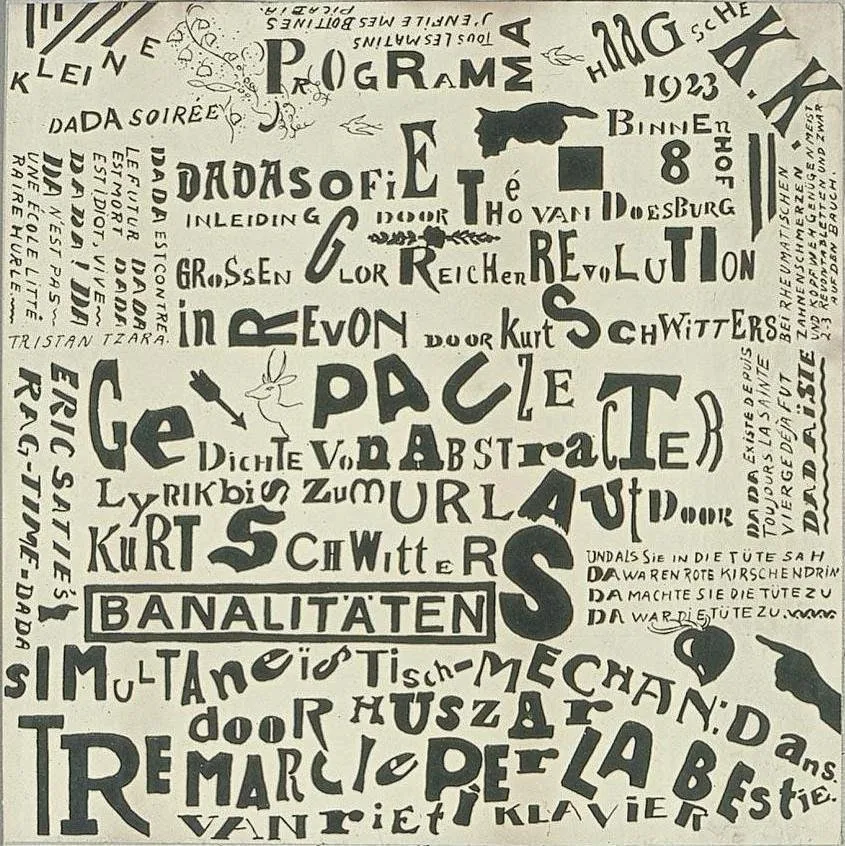 KLEINE
DADA SOIRÉE
TOUS LES MATINS
J'ENFILE MES BOTTINES
PICABIA.
PROGRAMMA
HAAGSCHE K.K.
1923
BINNENHOF
8
DADASOFiE
INLEIDING DOOR Théo VAN DOESBURG
GROSSEN GLORREICHEN REVOLUTION
in REVON DOOR Kurt SCHWITTERS
DADA EST CONTRE
LE FUTUR DADA
EST MORT DADA
EST IDIOT, VIVE
DADA! DA
DA N'EST PAS
UNE ÉCOLE LITTÉ
RAIRE HURLE
TRISTAN TZARA.
BEI RHEUMATISCHEN
ZAHNENSCHMERZEN
UND KOPF IN H GENÜGEN MEIST
2-3 REVONTABLETTEN UND ZWAR
AUF DEN BAUCH.
PAUZE
GeDICHTE Von ABSTracTER
LyRIKbiS ZUM URLAUt DOOR
KuRT SCHWittERS
BANALITÄTEN
ERIC SATIE'S
RAG-TIME=DADA
DADA EXISTE DEPUIS
TOUJOURS LA SAINTE
VIERGE DÉJÀ FUT
DADAÏSTE
UND ALS SIE IN DIE TÜTE SAH
DA WAREN ROTE KIRSCHEN DRIN
DA MACHTE SIE DIE TÜTE ZU
DA WAR DIE TÜTE ZU.
SIMULTANeïSTisch-MECHAN: Dans.
dooR HUSZAr
TRE MARCIe PEr LA BEStie.
VAN rieti KLAVIER